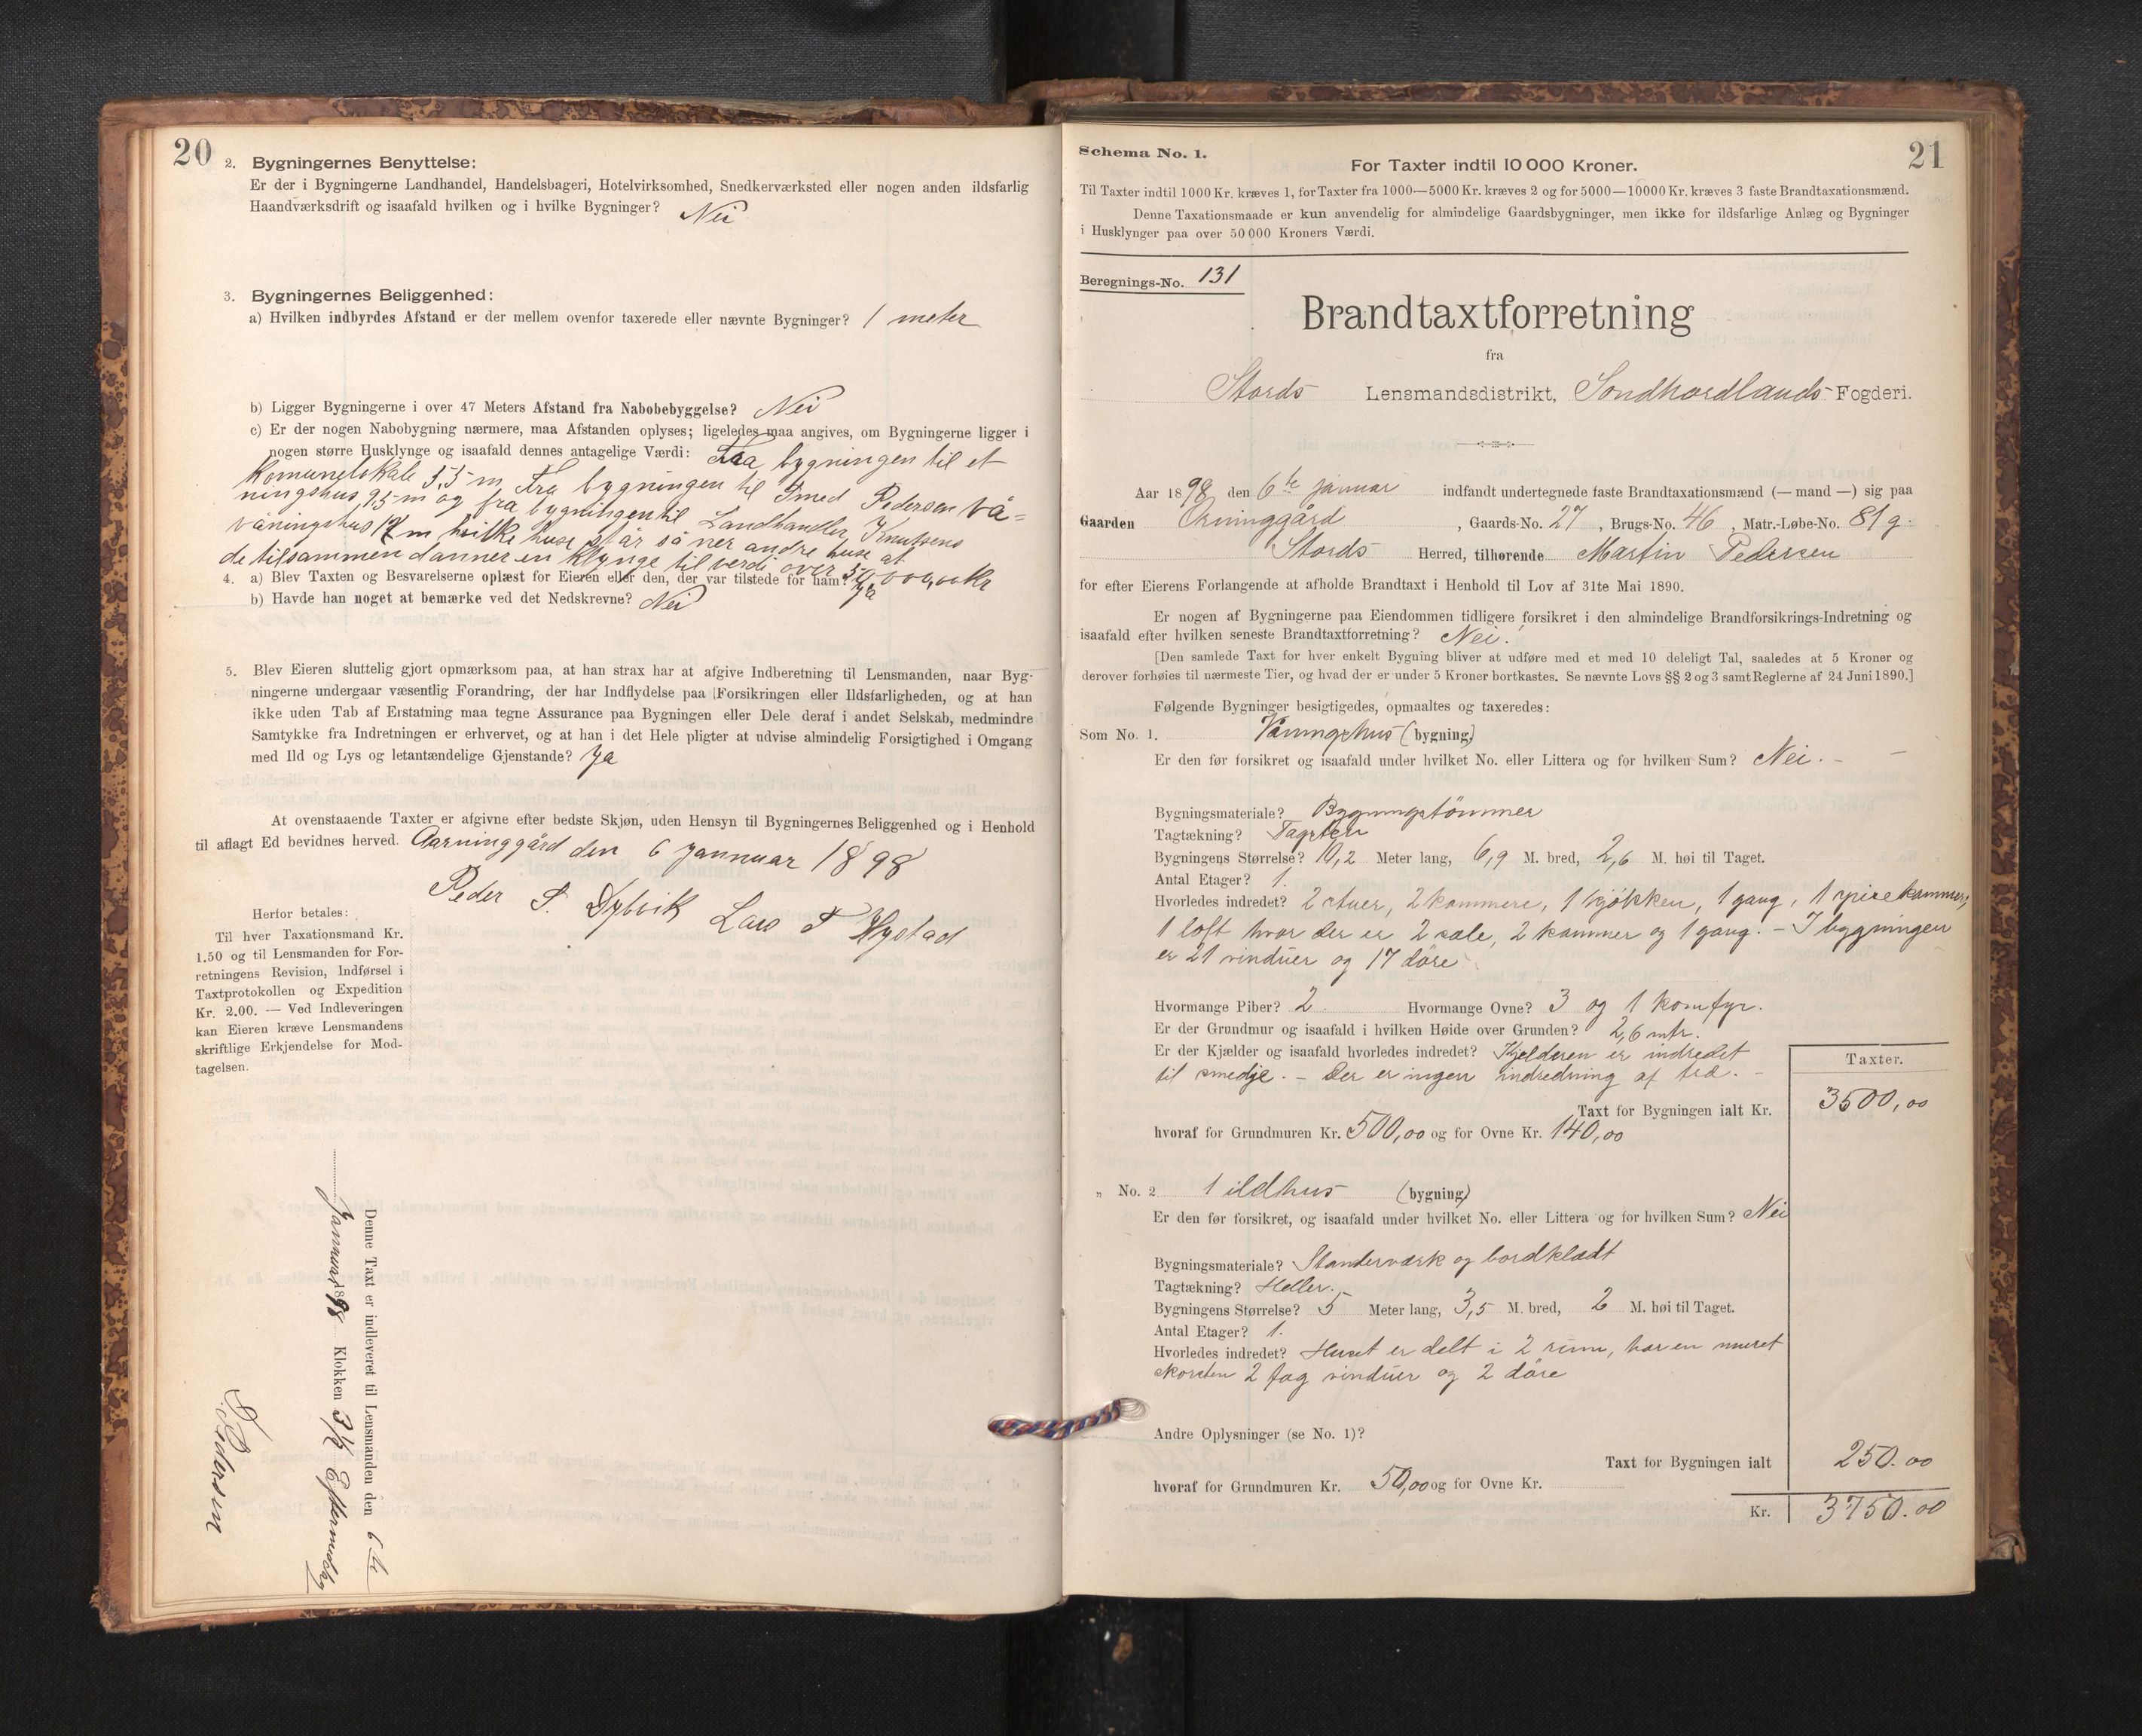 20
2. Bygningernes Benyttelse:
Er der i Bygningerne Landhandel, Handelsbageri, Hotelvirksomhed, Snedkerværksted eller nogen anden ildsfarlig
Haandværksdrift og isaafald hvilken og i hvilke Bygninger? Nei
3. Bygningernes Beliggenhed:
a) Hvilken indbyrdes Afstand er der mellem ovenfor taxerede eller nævnte Bygninger? 1 meter
b) Ligger Bygningerne i over 47 Meters Afstand fra Nabobebyggelse? Nei
c) Er der nogen Nabobygning nærmere, maa Afstanden oplyses; ligeledes maa angives, om Bygningerne ligger i
nogen større Husklynge og isaafald dennes antagelige Værdi: Fra bygningen til et
Komunelokale 5,5 m Fra bygningen til Smed Pedersen vå=
ningshus 9,5 m og fra bygningen til Landhandler Knutsens
våningshus m hvilke huse står så nær andre huse at
de tilsammen danner en klynge til verdi over 50,000,00 Kr
4. a) Blev Taxten og Besvarelserne oplæst for Eieren eller den, der var tilstede for ham? Ja
b) Havde han noget at bemærke ved det Nedskrevne? Nei
5. Blev Eieren sluttelig gjort opmærksom paa, at han strax har at afgive Indberetning til Lensmanden, naar Byg-
ningerne undergaar væsentlig Forandring, der har Indflydelse paa Forsikringen eller Ildsfarligheden, og at han
ikke uden Tab af Erstatning maa tegne Assurance paa Bygningen eller Dele deraf i andet Selskab, medmindre
Samtykke fra Indretningen er erhvervet, og at han i det Hele pligter at udvise almindelig Forsigtighed i Omgang
med Ild og Lys og letantændelige Gjenstande? Ja
At ovenstaaende Taxter er afgivne efter bedste Skjøn, uden Hensyn til Bygningernes Beliggenhed og i Henhold
til aflagt Ed bevidnes herved. Aarninggård den 6 Jannuar 1898
Peder S. Dybvik Lars T Hystad
Herfor betales:
Til hver Taxationsmand Kr.
1.50 og til Lensmanden for For-
retningens Revision, Indførsel i
Taxtprotokollen og Expedition
Kr. 2.00. — Ved Indleveringen
kan Eieren kræve Lensmandens
skriftlige Erkjendelse for Mod-
tagelsen.
Denne Taxt er indleveret til Lensmanden den 6te
Januar 1898 Klokken 3½ Eftermiddag
Pedersen
21
Schema No. 1.
For Taxter indtil 10 000 Kroner.
Til Taxter indtil 1000 Kr. kræves 1, for Taxter fra 1000—5000 Kr. kræves 2 og for 5000—10000 Kr. kræves 3 faste Brandtaxationsmænd.
Denne Taxationsmaade er kun anvendelig for almindelige Gaardsbygninger, men ikke for ildsfarlige Anlæg og Bygninger
i Husklynger paa over 50 000 Kroners Værdi.
Beregnings-No. 131
Brandtaxtforretning
fra
Stords Lensmandsdistrikt, Søndhordlands Fogderi.
Aar 1898 den 6te januar indfandt undertegnede faste Brandtaxationsmænd (— mand —) sig paa
Gaarden , Gaards-No. 27, Brugs-No. 46, Matr.-Løbe-No. 81g
Stords Herred, tilhørende Martin Pedersen
for efter Eierens Forlangende at afholde Brandtaxt i Henhold til Lov af 31te Mai 1890.
Er nogen af Bygningerne paa Eiendommen tidligere forsikret i den almindelige Brandforsikrings-Indretning og
isaafald efter hvilken seneste Brandtaxtforretning? Nei.
[Den samlede Taxt for hver enkelt Bygning bliver at udføre med et med 10 deleligt Tal, saaledes at 5 Kroner og
derover forhøies til nærmeste Tier, og hvad der er under 5 Kroner bortkastes. Se nævnte Lovs §§ 2 og 3 samt Reglerne af 24 Juni 1890.]
Følgende Bygninger besigtigedes, opmaaltes og taxeredes:
Som No. 1. Våningshus (bygning)
Er den før forsikret og isaafald under hvilket No. eller Littera og for hvilken Sum? Nei. —
Bygningsmateriale? Bygningstömmer
Tagtækning? Tagsten
Bygningens Størrelse? 10,2 Meter lang, 6,9 M. bred, 2,6 M. høi til Taget.
Antal Etager? 1.
Hvorledes indredet? 2 stuer, 2 kammere, 1 kjökken, 1 gang, 1 spisekammer,
1 loft hvor der er 2 sale, 2 kammer og 1 gang. — I bygningen
er 21 vinduer og 17 döre
Hvormange Piber? 2 Hvormange Ovne? 3 og 1 komfyr.
Er der Grundmur og isaafald i hvilken Høide over Grunden? 2,6 mtr.
Er der Kjælder og isaafald hvorledes indredet? Kjelderen er indredet
til smedje. — Der er ingen indredning af træ. —
Taxter.
Taxt for Bygningen ialt Kr. 3500,00
hvoraf for Grundmuren Kr. 500,00 og for Ovne Kr. 140,00
„ No. 2 1 ildhus (bygning)
Er den før forsikret, og isaafald under hvilket No. eller Littera og for hvilken Sum? Nei
Bygningsmateriale? Standerværk og bordklædt
Tagtækning? Heller.
Bygningens Størrelse? 5 Meter lang, 3,5 M. bred, 2 M. høi til Taget.
Antal Etager? 1.
Hvorledes indredet? Huset er delt i 2 rum, har en muret
skorsten 2 fag vinduer og 2 döre
Andre Oplysninger (se No. 1)?
Taxt for Bygningen ialt 250.00
hvoraf for Grundmuren Kr. 50,00 og for Ovne Kr.
Kr. 3750.00